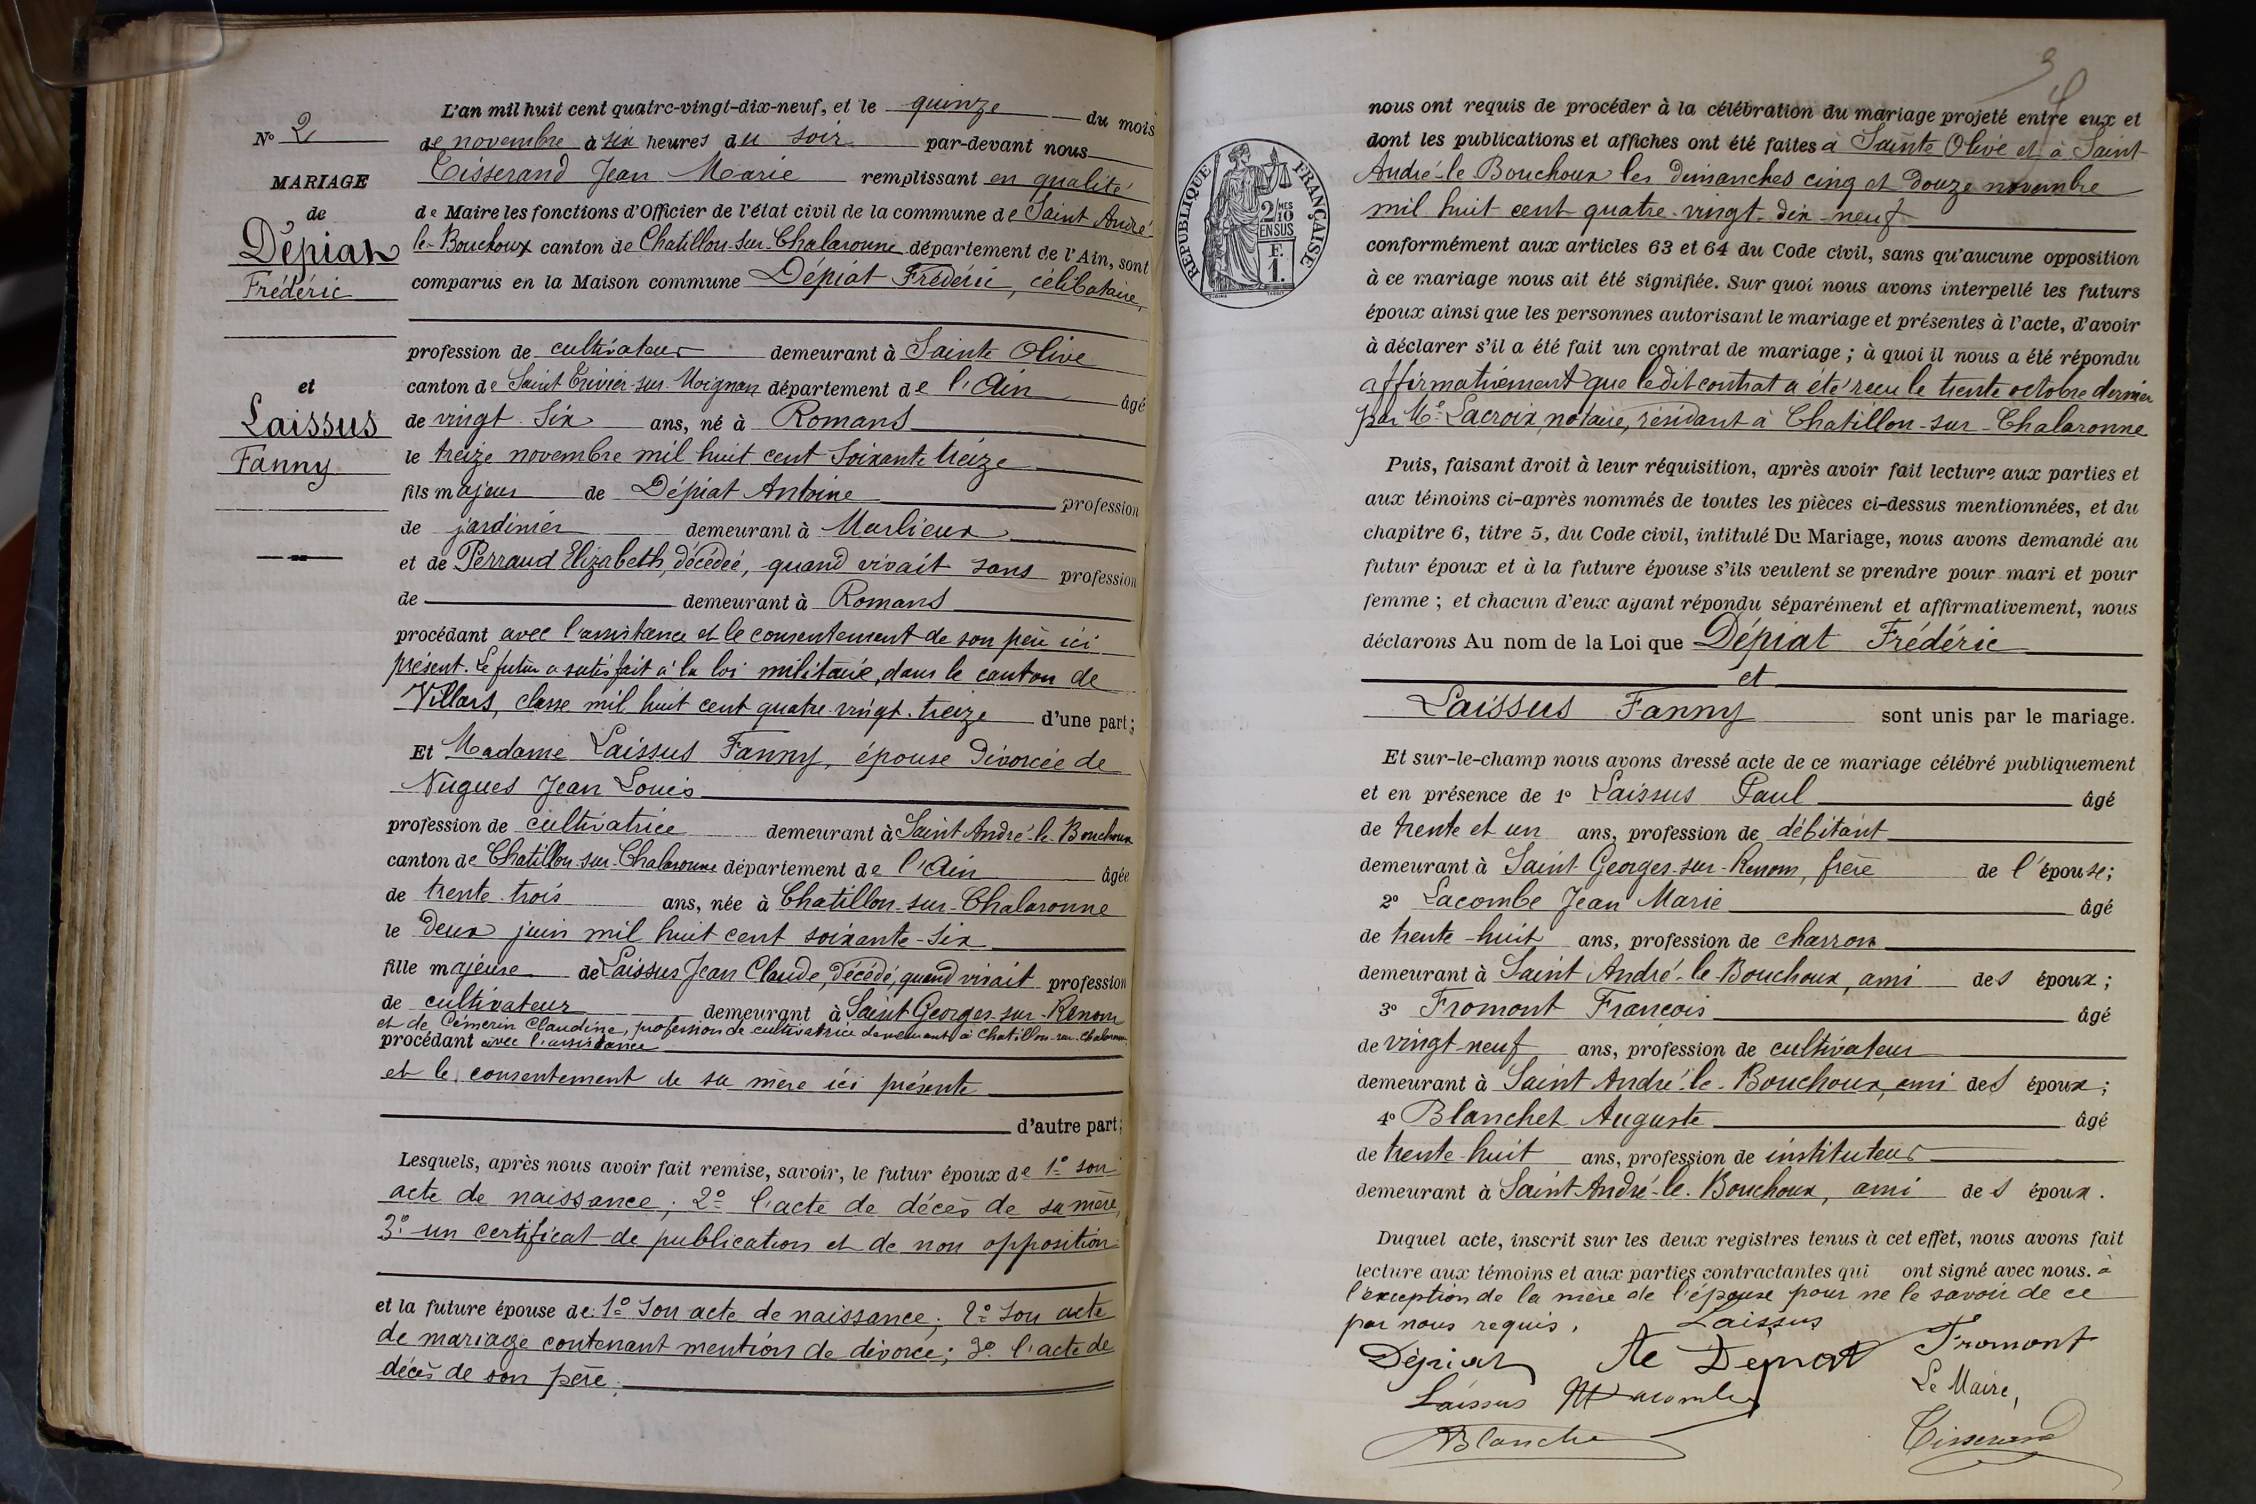 N° 2
MARIAGE
de
Dépiat
Frédéric
et
Laissus
Fanny
L'an mil huit cent quatre-vingt-dix-neuf, et le quinze du mois
de novembre à six heures du soir par-devant nous
Tisserand Jean Marie remplissant en qualité
de Maire les fonctions d'Officier de l'état civil de la commune de Saint André
le-Bouchoux canton de Chatillon-sur-Chalaronne département de l'Ain, sont
comparus en la Maison commune Dépiat Frédéric, célibataire,
profession de cultivateur demeurant à Sainte Olive
canton de Saint Trivier-sur-Moignan département de l'Ain âgé
de vingt-six ans, né à Romans
le treize novembre mil huit cent soixante treize
fils majeur de Dépiat Antoine profession
de jardinier demeurant à Marlieux
et de Perraud Elizabeth, décédée, quand vivait sans profession
de demeurant à Romans
procédant avec l'assistance et le consentement de son père ici
présent. Le futur a satisfait à la loi militaire, dans le canton de
Villars, classe mil huit cent quatre-vingt-treize d'une part;
Et Madame Laissus Fanny, épouse divorcée de
Nugues Jean Louis
profession de cultivatrice demeurant à Saint André-le-Bouchoux
canton de Chatillon-sur-Chalaronne département de l'Ain âgée
de trente-trois ans, née à Chatillon-sur-Chalaronne
le deux juin mil huit cent soixante-six
fille majeure de Laissus Jean Claude, décédé, quand vivait profession
de cultivateur demeurant à Saint Georges-sur-Renom
et de Cémerin Claudine, profession de cultivatrice demeurant à Chatillon-sur-Chalaronne
procédant avec l'assistance
et le consentement de sa mère ici présente
d'autre part;
Lesquels, après nous avoir fait remise, savoir, le futur époux de 1° son
acte de naissance; 2° l'acte de décès de sa mère,
3° un certificat de publication et de non opposition
et la future épouse de: 1° son acte de naissance; 2° son acte
de mariage contenant mention de divorce; 3° l'acte de
décès de son père.
3
RÉPUBLIQUE FRANÇAISE
2/10 MES
EN SUS
F.
1.
nous ont requis de procéder à la célébration du mariage projeté entre eux et
dont les publications et affiches ont été faites à Sainte Olive et à Saint
André-le-Bouchoux les dimanches cinq et douze novembre
mil huit cent quatre-vingt-dix-neuf
conformément aux articles 63 et 64 du Code civil, sans qu'aucune opposition
à ce mariage nous ait été signifiée. Sur quoi nous avons interpellé les futurs
époux ainsi que les personnes autorisant le mariage et présentes à l'acte, d'avoir
à déclarer s'il a été fait un contrat de mariage; à quoi il nous a été répondu
affirmativement que ledit contrat a été reçu le trente octobre dernier
par Me Lacroix, notaire, résidant à Chatillon-sur-Chalaronne
Puis, faisant droit à leur réquisition, après avoir fait lecture aux parties et
aux témoins ci-après nommés de toutes les pièces ci-dessus mentionnées, et du
chapitre 6, titre 5, du Code civil, intitulé Du Mariage, nous avons demandé au
futur époux et à la future épouse s'ils veulent se prendre pour mari et pour
femme; et chacun d'eux ayant répondu séparément et affirmativement, nous
déclarons Au nom de la Loi que Dépiat Frédéric
et
Laissus Fanny sont unis par le mariage.
Et sur-le-champ nous avons dressé acte de ce mariage célébré publiquement
et en présence de 1° Laissus Paul âgé
de trente et un ans, profession de débitant
demeurant à Saint Georges-sur-Renom, frère de l'épouse;
2° Lacombe Jean Marie âgé
de trente-huit ans, profession de charron
demeurant à Saint André-le-Bouchoux, ami des époux;
3° Fromont François âgé
de vingt-neuf ans, profession de cultivateur
demeurant à Saint André-le-Bouchoux, ami des époux;
4° Blanchet Auguste âgé
de trente-huit ans, profession de instituteur
demeurant à Saint André-le-Bouchoux, ami des époux.
Duquel acte, inscrit sur les deux registres tenus à cet effet, nous avons fait
lecture aux témoins et aux parties contractantes qui ont signé avec nous. à
l'exception de la mère de l'épouse pour ne le savoir de ce
par nous requis.
Laissus
Dépiat Dépiat Fromont
Laissus Lacombe Le Maire,
Blanchet Tisserand